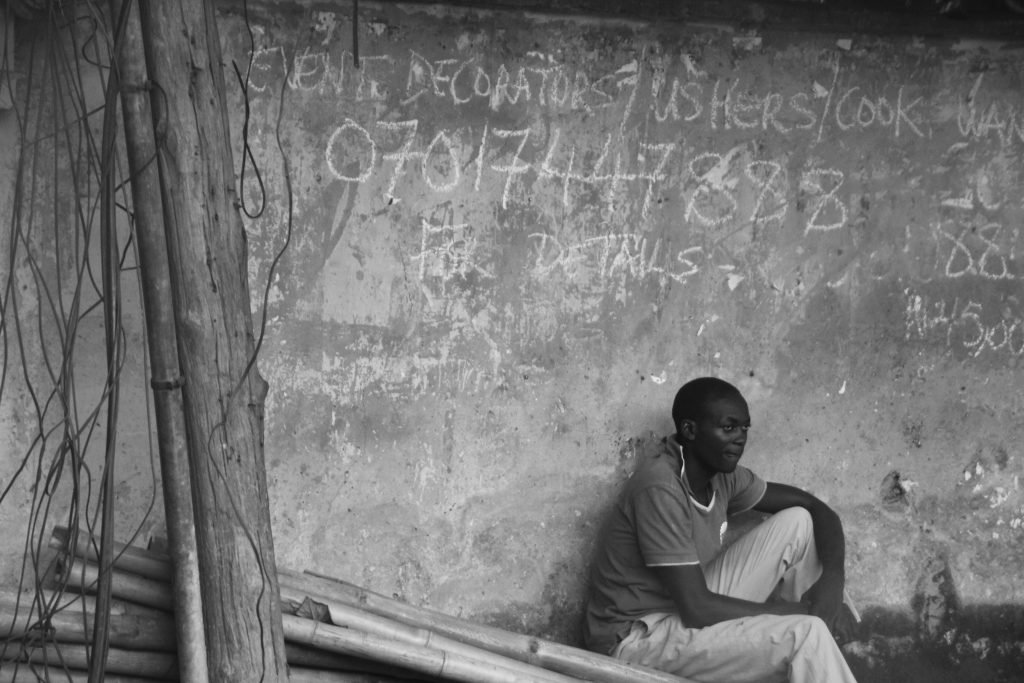 EVENT DECORATORS/USHERS/COOK WAN
07017447888
FOR DETAILS
88